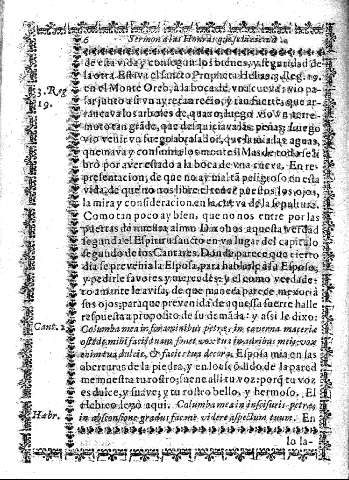 6 Sermon a las Honras
de esta vida, y consigan los bienes, y seguridad de
la otra. Estava el sancto Propheta Helias 3. Reg. 19.
en el Monte Oreb, à la boca de vna cueva: vio pa-
sar junto a si vn ayre tan recio, y tan fuerte, que ar-
rancava los arboles de quajo; luego vio vn terre-
moto tan grãde, que desquiciava las peñas; luego
vio venir vn fuego abrasador, que secava las aguas,
quemava y consumia los montes. Mas de todo se li-
bró por aver estado a la boca de vna cueva. En re-
presentacion, de que no ay mal tã peligroso en esta
vida, de que no nos libre el tener puestos los ojos,
la mira y consideracion en la cueva de la sepultura.
Como tan poco ay bien, que no nos entre por las
puertas de nuestra alma. Dixo nos aquesta verdad
segunda el Espiritu sancto en vn lugar del capitulo
segundo de los Cantares. Donde parece que cierto
dia se prevenia la Esposa, para hablarle à su Esposo,
y pedirle favores y mercedes: y el como verdade-
ro amante le avisa, de que no ponga parece mejoria
sus ojos; para que prevenida de aquessa suerte halle
respuesta a proposito de su demãda: y asi le dixo:
Columba mea in foraminibus petræ, in caverna maceriæ
ostende mihi faciem tuam, sonet vox tua in auribus meis; vox
enim tua dulcis, & facies tua decora. Esposa mia en las
aberturas de la piedra, y en los escõdijo de la pared
me muestra tu rostro; suene alli tu voz: porq̃ tu voz
es dulce, y suave; y tu rostro bello, y hermoso. El
Hebreo leyò aqui. Columba mea in scissuris petræ,
in absconsione gradus fac me videre aspectum tuum. En
lo la-
3. Reg
19.
Cant. 2
Habr.